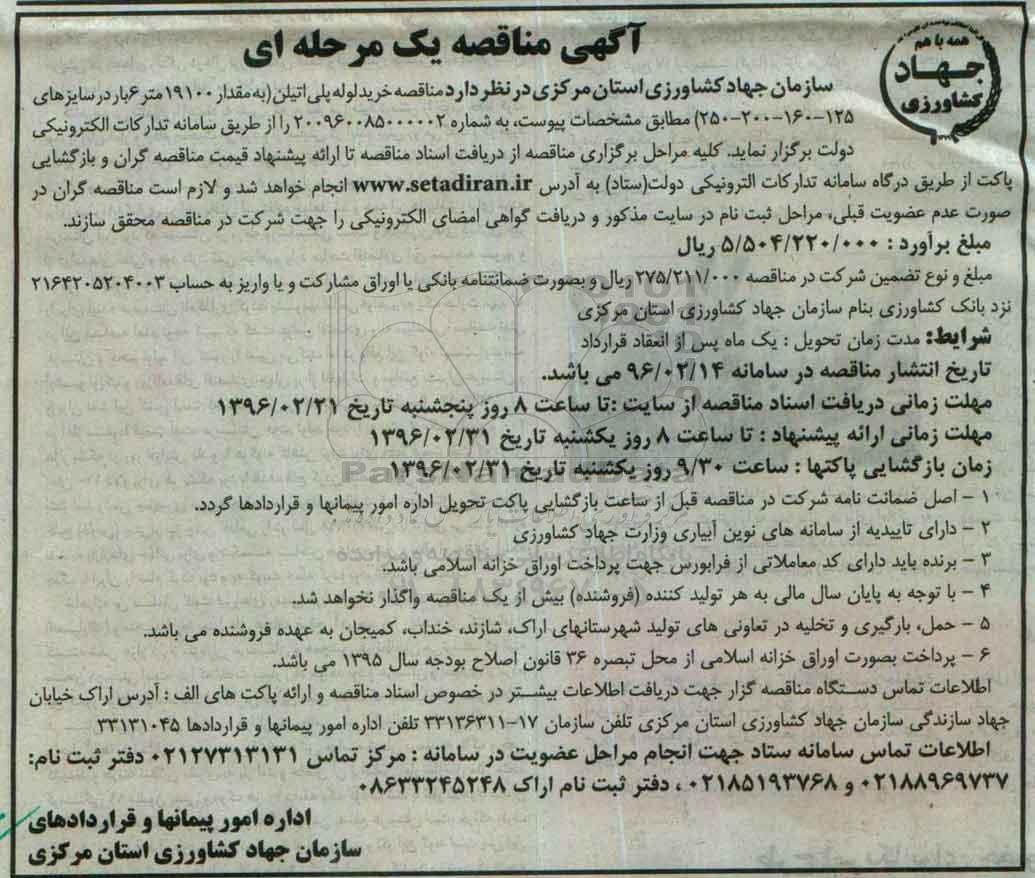 همه با هم
جهاد
کشاورزی
آگهی مناقصه یک مرحله ای
سازمان جهاد کشاورزی استان مرکزی در نظر دارد مناقصه خرید لوله پلی اتیلن (به مقدار ۱۹۱۰۰ متر ۶ بار در سایزهای
۱۲۵-۱۶۰-۲۰۰-۲۵۰) مطابق مشخصات پیوست، به شماره ۲۰۰۹۶۰۰۸۵۰۰۰۰۰۲ را از طریق سامانه تدارکات الکترونیکی
دولت برگزار نماید. کلیه مراحل برگزاری مناقصه از دریافت اسناد مناقصه تا ارائه پیشنهاد قیمت مناقصه گران و بازگشایی
پاکت از طریق درگاه سامانه تدارکات الترونیکی دولت(ستاد) به آدرس www.setadiran.ir انجام خواهد شد و لازم است مناقصه گران در
صورت عدم عضویت قبلی، مراحل ثبت نام در سایت مذکور و دریافت گواهی امضای الکترونیکی را جهت شرکت در مناقصه محقق سازند.
مبلغ برآورد : ۵/۵۰۴/۲۲۰/۰۰۰ ریال
مبلغ و نوع تضمین شرکت در مناقصه ۲۷۵/۲۱۱/۰۰۰ ریال و بصورت ضمانتنامه بانکی یا اوراق مشارکت و یا واریز به حساب ۲۱۶۴۲۰۵۲۰۴۰۰۳
نزد بانک کشاورزی بنام سازمان جهاد کشاورزی استان مرکزی
شرایط: مدت زمان تحویل : یک ماه پس از انعقاد قرارداد
تاریخ انتشار مناقصه در سامانه ۹۶/۰۲/۱۴ می باشد.
مهلت زمانی دریافت اسناد مناقصه از سایت :تا ساعت ۸ روز پنجشنبه تاریخ ۱۳۹۶/۰۲/۲۱
مهلت زمانی ارائه پیشنهاد : تا ساعت ۸ روز یکشنبه تاریخ ۱۳۹۶/۰۲/۳۱
زمان بازگشایی پاکتها : ساعت ۹/۳۰ روز یکشنبه تاریخ ۱۳۹۶/۰۲/۳۱
۱ - اصل ضمانت نامه شرکت در مناقصه قبل از ساعت بازگشایی پاکت تحویل اداره امور پیمانها و قراردادها گردد.
۲ - دارای تاییدیه از سامانه های نوین آبیاری وزارت جهاد کشاورزی
۳ - برنده باید دارای کد معاملاتی از فرابورس جهت پرداخت اوراق خزانه اسلامی باشد.
۴ - با توجه به پایان سال مالی به هر تولید کننده (فروشنده) بیش از یک مناقصه واگذار نخواهد شد.
۵ - حمل، بارگیری و تخلیه در تعاونی های تولید شهرستانهای اراک، شازند، خنداب، کمیجان به عهده فروشنده می باشد.
۶ - پرداخت بصورت اوراق خزانه اسلامی از محل تبصره ۳۶ قانون اصلاح بودجه سال ۱۳۹۵ می باشد.
اطلاعات تماس دستگاه مناقصه گزار جهت دریافت اطلاعات بیشتر در خصوص اسناد مناقصه و ارائه پاکت های الف : آدرس اراک خیابان
جهاد سازندگی سازمان جهاد کشاورزی استان مرکزی تلفن سازمان ۱۷-۳۳۱۳۶۳۱۱ تلفن اداره امور پیمانها و قراردادها ۳۳۱۳۱۰۴۵
اطلاعات تماس سامانه ستاد جهت انجام مراحل عضویت در سامانه : مرکز تماس ۰۲۱۲۷۳۱۳۱۳۱ دفتر ثبت نام:
۰۲۱۸۸۹۶۹۷۳۷ و ۰۲۱۸۵۱۹۳۷۶۸ ، دفتر ثبت نام اراک ۰۸۶۳۳۲۴۵۲۴۸
اداره امور پیمانها و قراردادهای
سازمان جهاد کشاورزی استان مرکزی